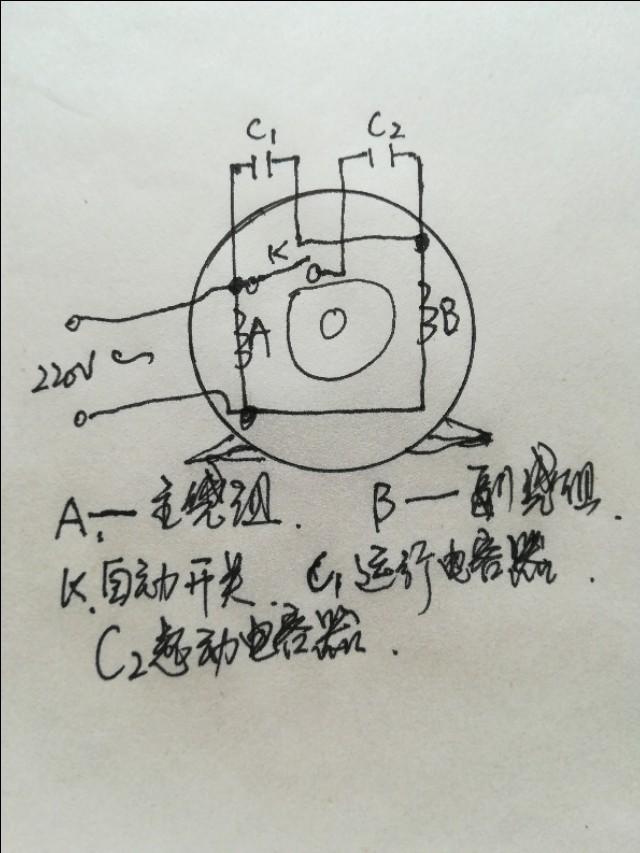 C1 C2
K
A B
220V ~
A — 主绕组. B — 副绕组.
K.自动开关. C1运行电容器.
C2起动电容器.